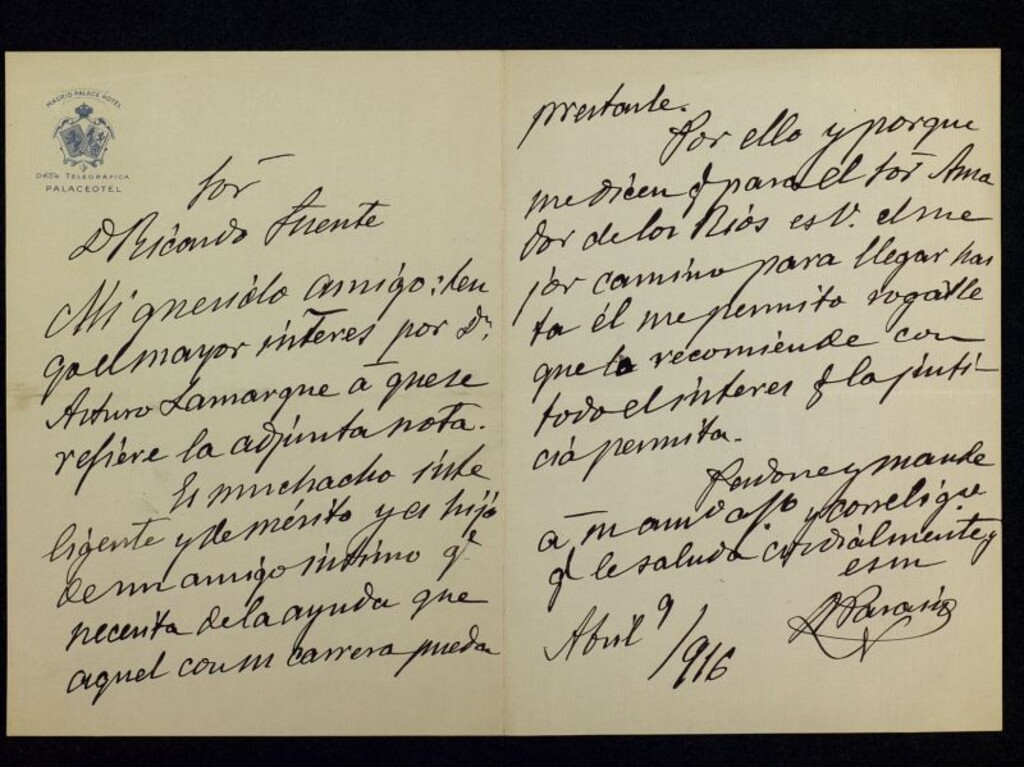 MADRID PALACE HOTEL
DIRón TELEGRÁFICA
PALACEOTEL
Sor
D Ricardo Fuente
Mi querido amigo: ten
go el mayor interes por Dn
Arturo Lamarque á que se
refiere la adjunta nota.
Es muchacho inte
ligente y de mérito y es hijo
de un amigo intimo qe
necesita de la ayuda que
aquel con su carrera pueda
prestarle.
Por ello y porque
me dicen q para el Sor Ama
dor de los Rios es V. el me
jor camino para llegar has
ta él me permito rogarle
que lo recomiende con
todo el interes q la justi-
cia permita.
Perdone y mande
á su am° affo. y correligo
q le saluda cordialmente y
esm
Abril 9/916